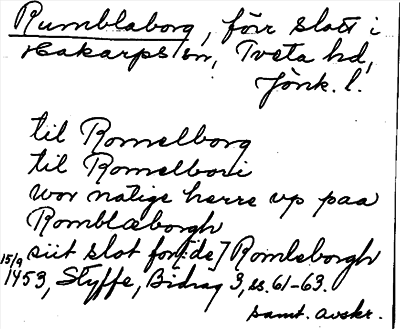 Rumblaborg, förr slott i
Hakarps sn, Tveta hd,
Jönk. l.
til Romelborg
til Romelbori
wor nalige herre vp paa
Romblæborgh
siit slot for[de] Romleborgh
15/9 1453, Styffe, Bidrag 3, ss. 61-63.
samt. avskr.